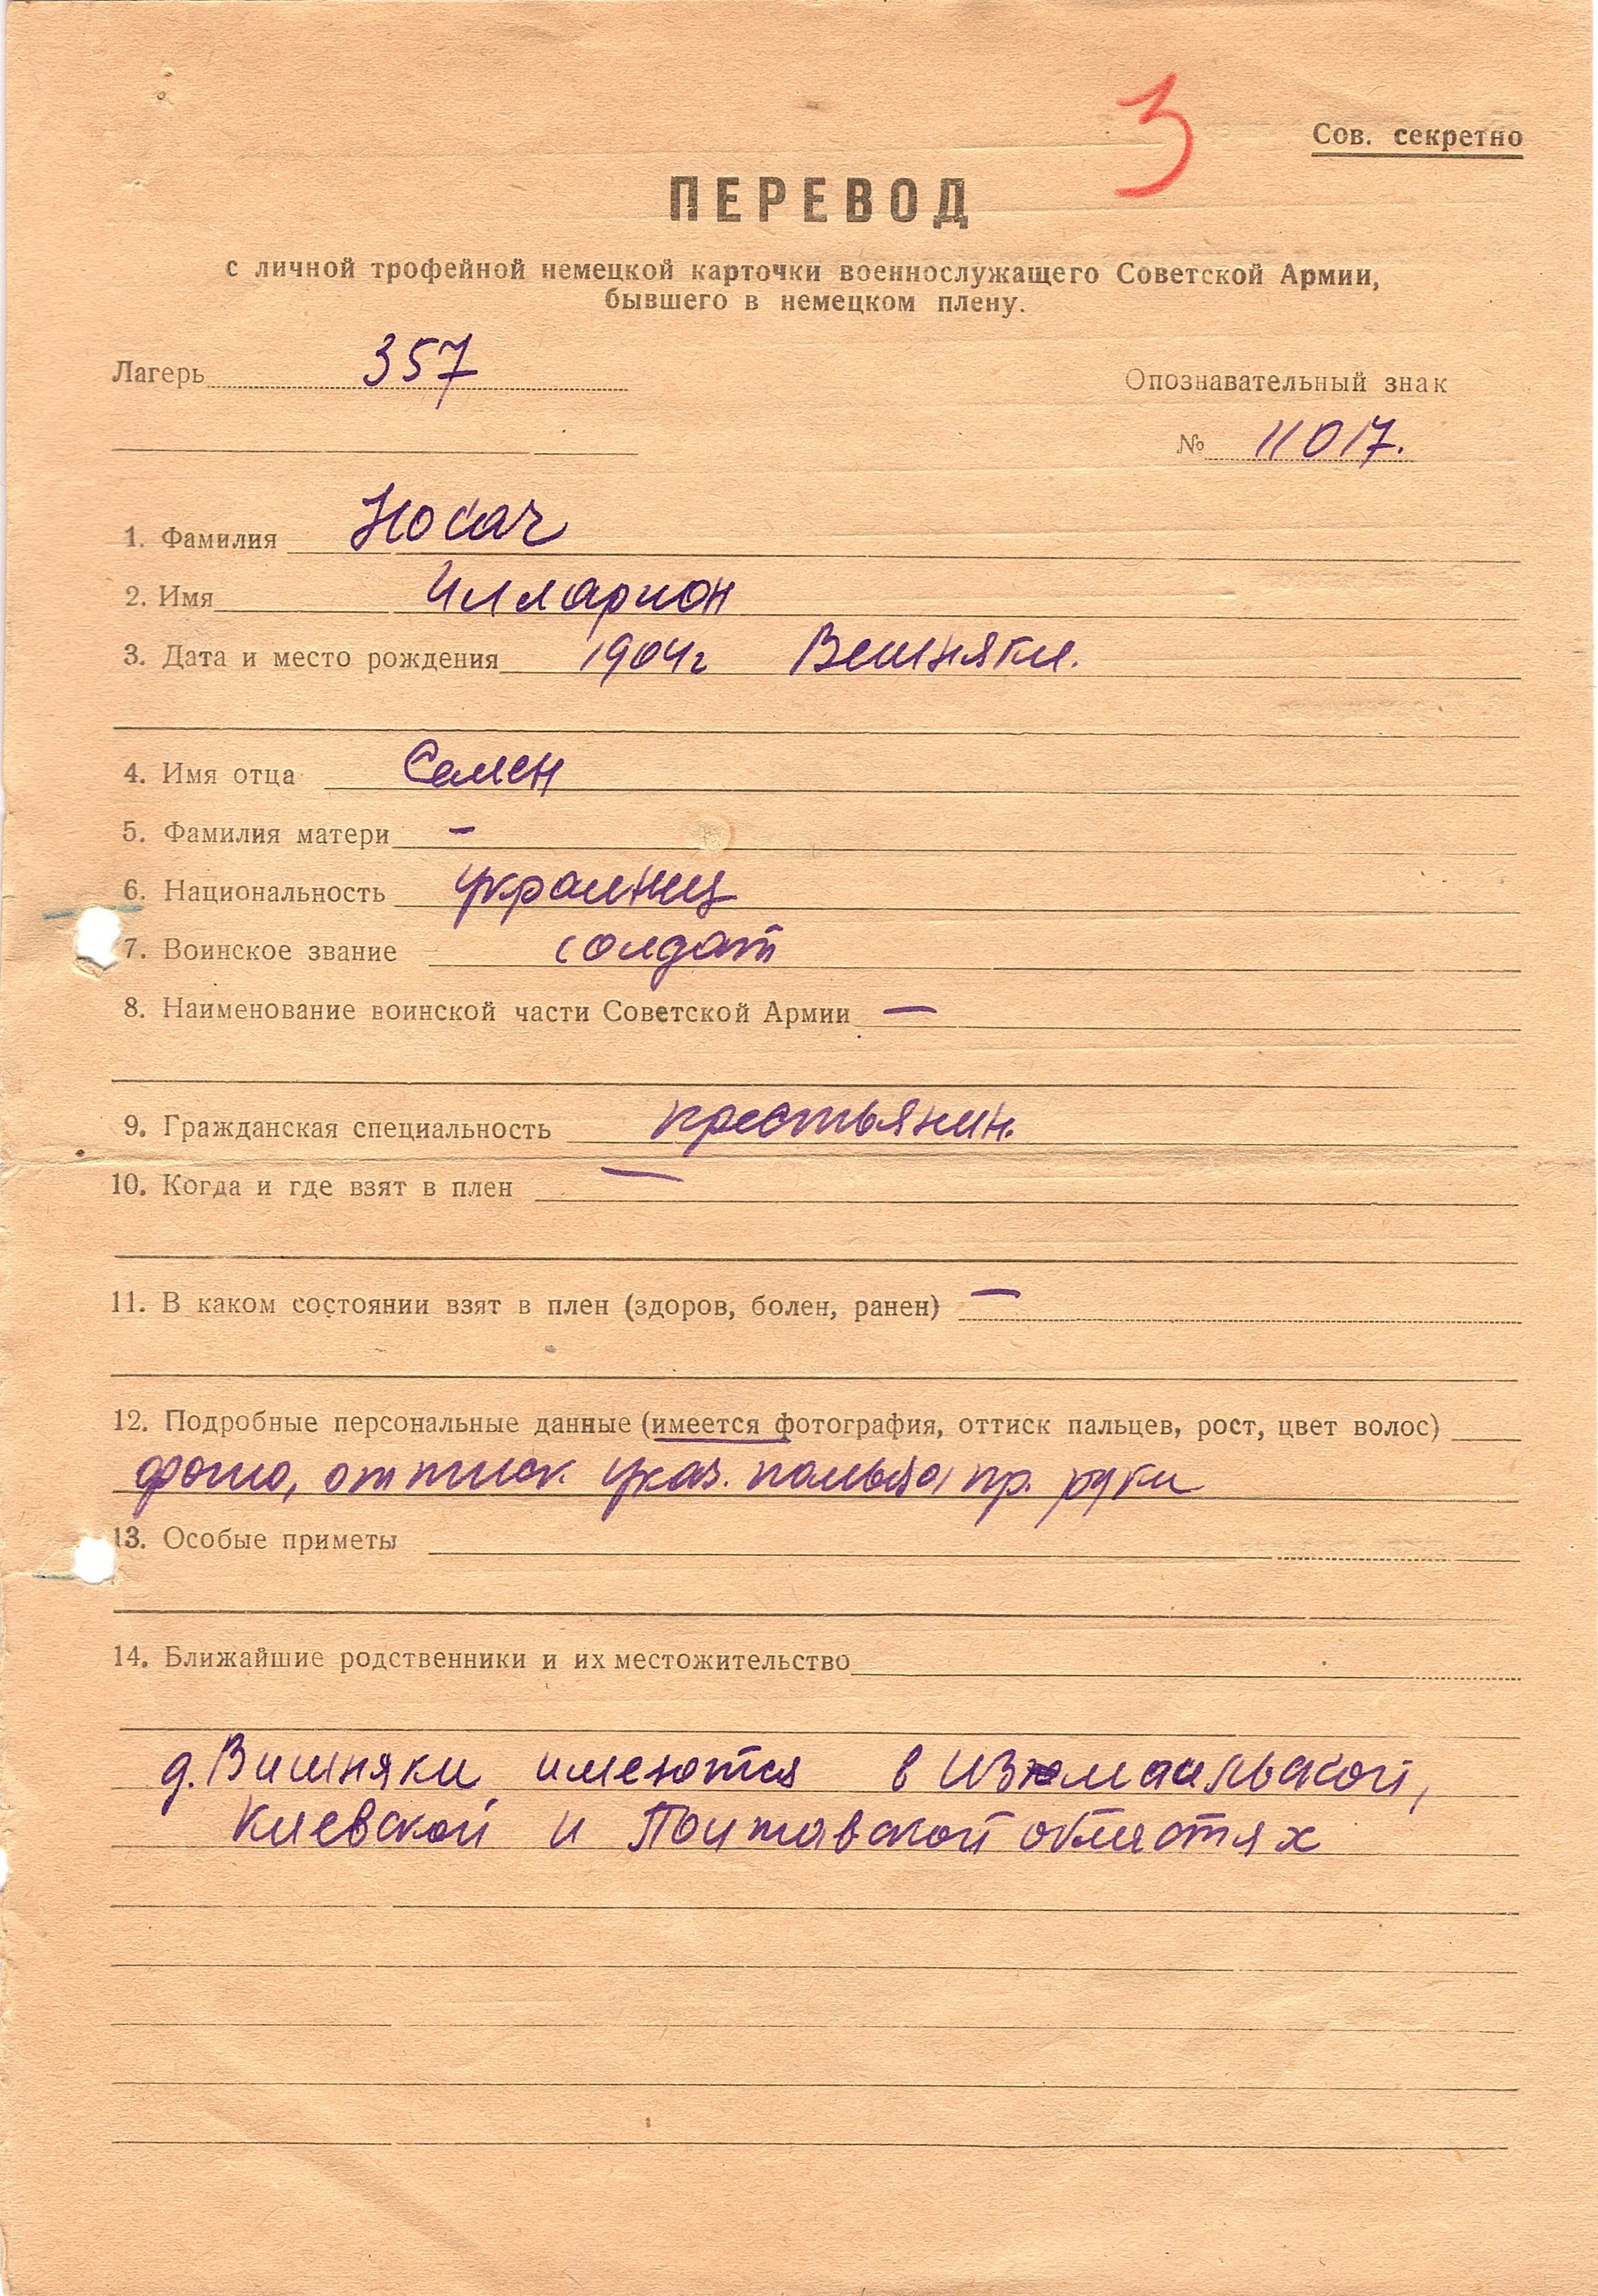 3
Сов. секретно
ПЕРЕВОД
с личной трофейной немецкой карточки военнослужащего Советской Армии,
бывшего в немецком плену.
Лагерь 357
Опознавательный знак
№ 11017.
1. Фамилия Носач
2. Имя Илларион
3. Дата и место рождения 1904г Вешняки.
4. Имя отца Семен
5. Фамилия матери –
6. Национальность украинец
7. Воинское звание солдат
8. Наименование воинской части Советской Армии —
9. Гражданская специальность крестьянин.
10. Когда и где взят в плен —
11. В каком состоянии взят в плен (здоров, болен, ранен) —
12. Подробные персональные данные (имеется фотография, оттиск пальцев, рост, цвет волос)
фото, оттиск указ. пальца пр. руки
13. Особые приметы
14. Ближайшие родственники и их местожительство
д. Вишняки имеются в Измаильской,
Киевской и Полтавской областях